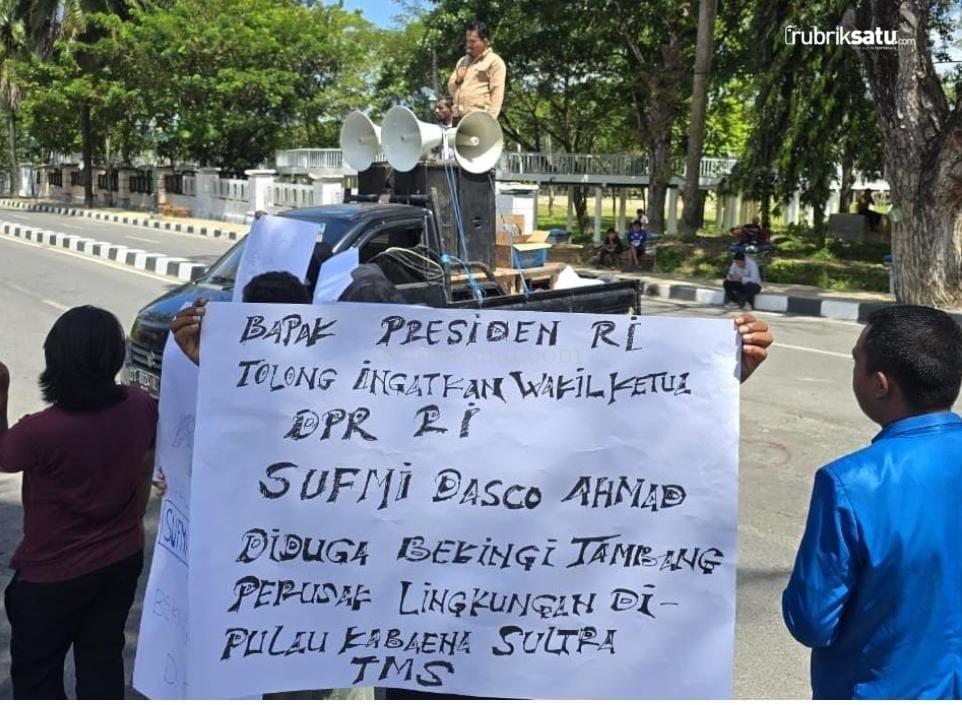 rubriksatu.com
BAPAK PRESIDEN RI
TOLONG INGATKAN WAKIL KETUA
DPR RI
SUFMI DASCO AHMAD
DIDUGA BEKINGI TAMBANG
PERUSAK LINGKUNGAN DI-
PULAU KABAENA SULTRA
TMS
SUFMI